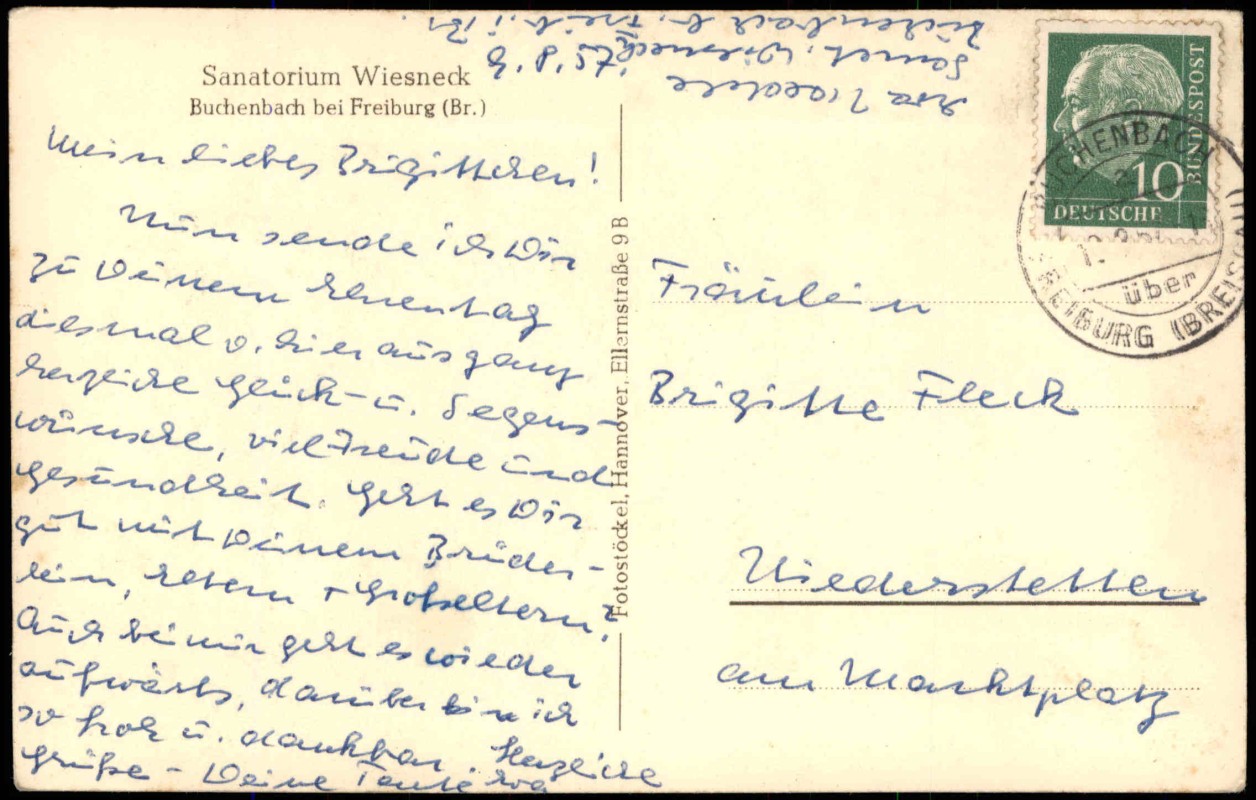 Sanatorium Wiesneck
Buchenbach bei Freiburg (Br.)
Mein liebes Brigittchen!
Nun sende ich Dir
zu Deinem Ehrentag
diesmal v. hier aus ganz
herzliche Glück- u. Seegens-
wünsche, viel Freude und
Gesundheit. Geht es Dir
gut mit Deinem Brüder-
lein, Eltern + Großeltern?
Auch bei mir geht es wieder
aufwärts, darüber bin ich
so froh u. dankbar. Herzliche
Grüße - Deine Tante Eva
Fotostöckel, Hannover, Ellernstraße 9 B
Eva
Sanat. Wiesneck
Buchenbach b. Freib. i. Br.
DEUTSCHE
BUNDESPOST
10
BUCHENBACH
über
FREIBURG (BREISGAU)
Fräulein
Brigitte Fleck
Niederstetten
am Marktplatz